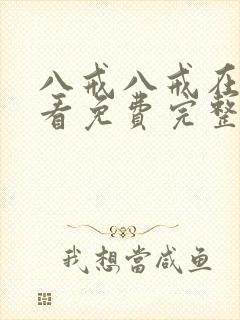 八戒八戒在
看免费完整
我想當咸鱼